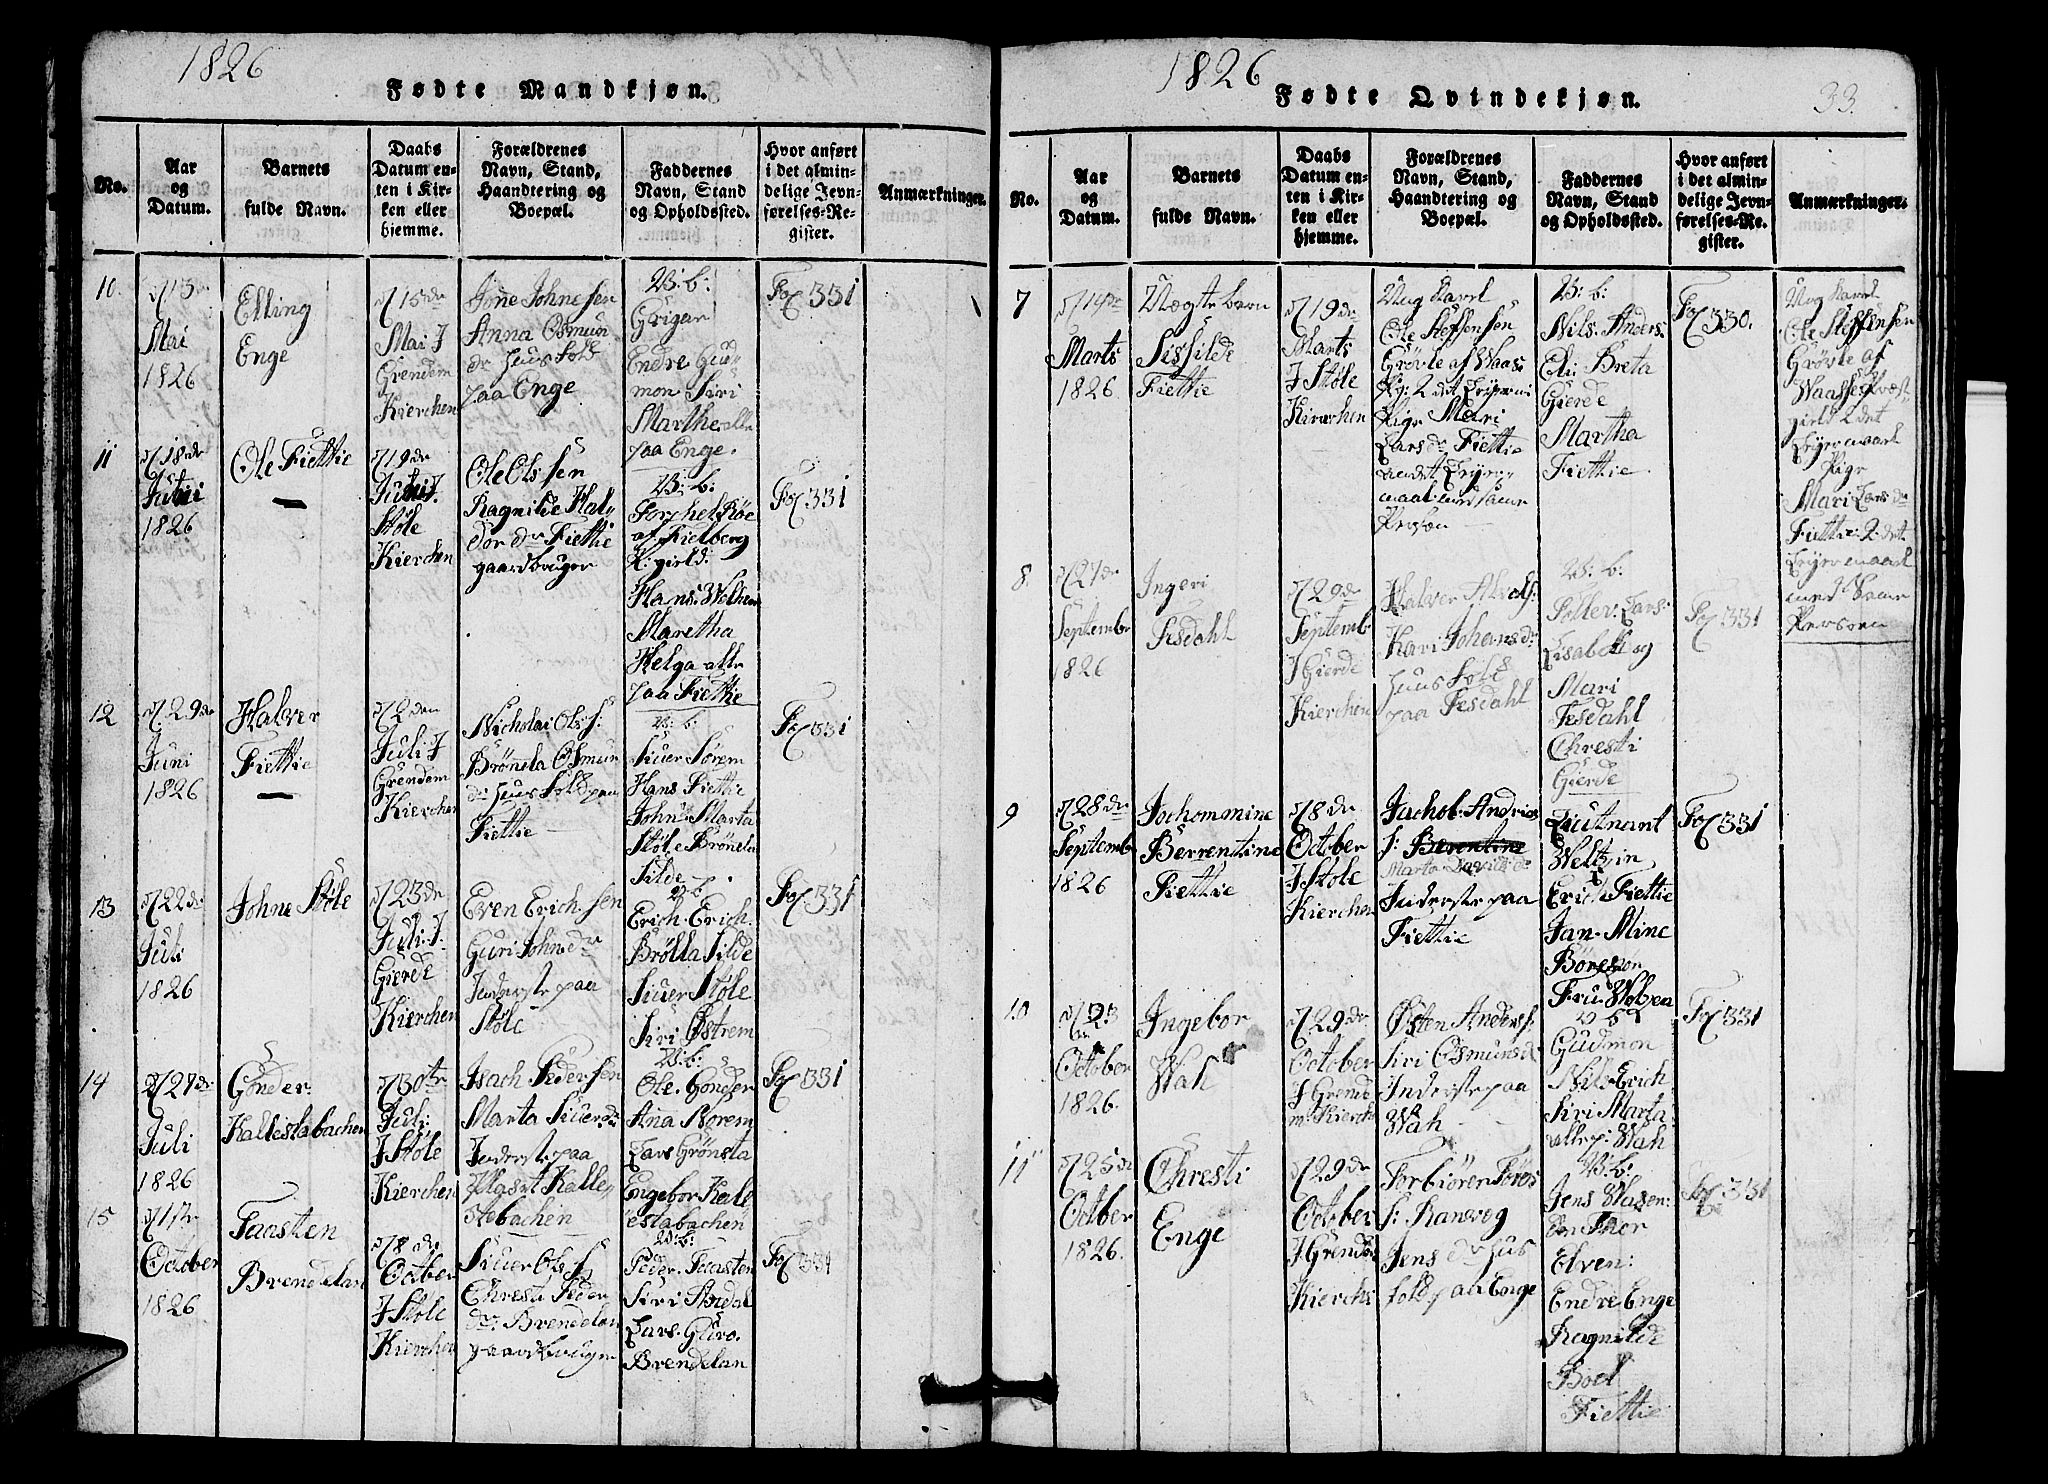 1826
Fødte Mandkjøn.
No.
Aar
og
Datum.
Barnets
fulde Navn.
Daabs
Datum en-
ten i Kir-
ken eller
hjemme.
Forældrenes
Navn, Stand,
Haandtering og
Boepæl.
Faddernes
Navn, Stand
og Opholdssted.
Hvor anført
i det almin-
delige Jevn-
førelses-Re-
gister.
Anmærkninger.
10.
Mai
1826
Elling
Enge
Mai J
Grendem
Kierchen
Jone Johnesen
Anna Osmun
dr Huusfolk
paa Enge
V: b:
Grigar
Endre Gud-
mon Siri
Marthe alle
paa Enge.
Fol 331
11
d 18de
Juni
1826
Ole Fiettie
d 19de
Juni J.
Støle
Kierchen
Ole Olssen
Ragnilde Hal-
dor dr Fiettie
gaardbruger
V: b:
af Fielberg
P: gield:
Hans
Maretha
Helga alle
paa Fiettie
Fol 331
12
d 29de
Juni
1826
Halver
Fiettie
d 2den
Juli J
Grendem
Kierchen
Nicholai Ols s:
Brønela Osmun
dr Huusfolk paa
Fiettie
V: b:
Siuer Sørem
Hans Fiettie
John Marta
Støle Brønela
Silde
Fol 331
13
d 22de
Juli
1826
Johne Støle
d 23de
Juli J
Gierde
Kierchen
Even Erichsen
Guri John dr
Inderste paa
Støle
V: b:
Erich Erich
Brølla Silde
Siuer Støle
Siri Østrem
Fol 331
14
d 27de
Juli
1826
Gonder
Kallestabachen
d 30te
Juli
J Støle
Kierchen
Isach Pedersen
Marta Siuer dr
Inderste paa
Plaset Kalle-
stebachen
V: b:
Ole Gonder
Ana Norem
Lars Grønsta
Engebor Kall
estabachen
Fol 331
15
October
1826
Taasten
Brendelan
d 8de
October
J Støle
Kierchen
Siuer Ols s
Christi Peder
dr Brendelan
gaardbruger
V: b:
Peder Taasten
Siri Andal
Lars Guro
Brendelan
Fol 331
1826
Fødte Qvindekjøn.
33.
No.
Aar
og
Datum.
Barnets
fulde Navn.
Daabs
Datum en-
ten i Kir-
ken eller
hjemme.
Forældrenes
Navn, Stand,
Haandtering og
Boepæl.
Faddernes
Navn, Stand
og Opholdssted.
Hvor anført
i det almin-
delige Jevn-
førelses-Re-
gister.
Anmærkninger.
7
d 14de
Marts
1826
Uægte barn
Sissilde
Fiettie
d 19de
Marts
J Støle
Kirchen
Ung Karl
Ole Steffensen
Grøvle af Waas
Pige Mari
Lars dr Fiettie
andet Leyer-
maal med samme
Person
V: b:
Nils Anders:
Eli Breta
Gierde
Martha
Fiettie
Fol 330.
Ung Karl
Ole Steffensen
Grøvle af
Waasse Præst-
gield 2det
Leyermaal
Pige
Mari Lars dr
Fiettie 2det
Leyermaal
med Samme
Person
8
d 27de
September
1826
Ingeri
Tesdahl
d 29de
Septemb
J Gierde
Kierchen
Kari Johans dr
Huusfolk
paa Tesdahl
V: b:
Lisabett og
Mari
Tesdahl
Christi
Gierde
Fol 331
9
d 28de
Septemb
1826
Jochommine
Berrentine
Fiettie
d 8de
October
J Støle
Kierchen
Jachob Andrias
s: Berentine
Marta Davids dr
Inderste paa
Fiettie
Lieutnant
Weltzin
Erich Fiettie
Jan Mine
Fru
Fol 331
10
d 23
October
1826.
Ingebor
Wah
d 29de
October
J Grende
m Kierche
Østen Anders s:
Siri Osmunds dr
Inderste paa
Wah
V b
Gudmon
Nils Erich
Siri Marta
alle p: Wah
Fol 331
11
d 25de
October
1826.
Christi
Enge
d 29de
October
J Grendem
Kierche
Torbiøren Tøres
s: Ransveg
Jens dr Hus
folk paa Enge
V: b:
Jens
Elven:
Endre Enge
Ragnilde
Boel
Fiettie
Fol 331